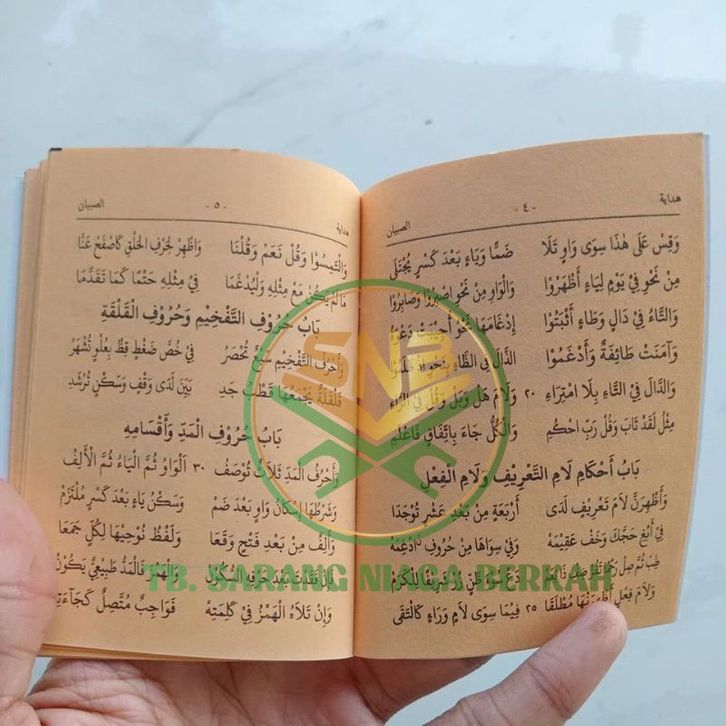 هداية
- ٤ -
الصبيان
وَقِسْ عَلَى هٰذَا سِوَى وَاوٍ تَلَا ضَمًّا وَيَاءٍ بَعْدَ كَسْرٍ يُجْتَلَى
مِنْ نَحْوِ فِي يَوْمٍ لِيَاءٍ أَظْهَرُوْا وَالْوَاوِ مِنْ نَحْوِ اصْبِرُوْا وَصَابِرُوْا
وَالتَّاءُ فِي دَالٍ وَطَاءٍ أَثْبَتُوْا إِدْغَامَهَا نَحْوُ أُجِيْبَتْ
وَآمَنَتْ طَائِفَةٌ وَأَدْغَمُوْا الذَّالَ فِي الظَّاءِ بِنَحْوِ
وَالدَّالَ فِي التَّاءِ بِلَا امْتِرَاءِ ٢٠ وَلَامَ هَلْ وَبَلْ وَقُلْ فِي الرَّاءِ
مِثْلُ لَقَدْ تَابَ وَقُلْ رَبِّ احْكُمِ وَالْكُلُّ جَاءَ بِاتِّفَاقٍ فَاعْلَمِ
بَابُ أَحْكَامِ لَامِ التَّعْرِيْفِ وَلَامِ الْفِعْلِ
وَأَظْهِرَنَّ لَامَ تَعْرِيْفٍ لَدَى أَرْبَعَةٍ مِنْ بَعْدِ عَشْرٍ تُوْجَدَا
فِي أَبْغِ حَجَّكَ وَخَفْ عَقِيْمَهُ وَفِي سِوَاهَا مِنْ حُرُوْفٍ أَدْغِمَهْ
طِبْ ثُمَّ صِلْ
وَلَامَ فِعْلٍ أَظْهِرَنْهَا مُطْلَقَا ٢٥ فِيْمَا سِوَى لَامٍ وَرَاءٍ كَالْتَقَى
هداية
- ٥ -
الصبيان
وَالْتَمِسُوْا وَقُلْ نَعَمْ وَقُلْنَا وَاظْهِرْ لِحَرْفِ الْحَلْقِ كَاصْفَحْ عَنَّا
مَالَمْ يَكُنْ مَعْ مِثْلِهِ وَلْيُدْغَمَا فِي مِثْلِهِ حَتْمًا كَمَا تَقَدَّمَا
بَابُ حُرُوْفِ التَّفْخِيْمِ وَحُرُوْفِ الْقَلْقَةِ
وَأَحْرُفُ التَّفْخِيْمِ سَبْعٌ تُحْصَرُ فِي خُصَّ ضَغْطٍ قِظْ بِعُلْوٍ تُشْهَرُ
قَلْقَلَةٌ يَجْمَعُهَا قُطْبُ جَدِ بَيِّنْ لَدَى وَقْفٍ وَسَكْنٍ تُرْشَدِ
بَابُ حُرُوْفِ الْمَدِّ وَأَقْسَامِهِ
وَأَحْرُفُ الْمَدِّ ثَلَاثٌ تُوْصَفُ ٣٠ اَلْوَاوُ ثُمَّ الْيَاءُ ثُمَّ الْأَلِفُ
وَشَرْطُهَا إِسْكَانُ وَاوٍ بَعْدَ ضَمْ وَسَكْنُ يَاءٍ بَعْدَ كَسْرٍ مُلْتَزَمْ
وَأَلِفٍ مِنْ بَعْدِ فَتْحٍ وَقَعَا وَلَفْظُ نُوْحِيْهَا لِكُلٍّ جَمَعَا
فَإِنْ فَقَدْتَ بَعْدَ حَرْفِهِ السُّكُوْنْ وَالْهَمْزَ فَالْمَدُّ طَبِيْعِيٌّ يَكُوْنْ
وَإِنْ تَلَاهُ الْهَمْزُ فِي كَلِمَتِهْ فَوَاجِبٌ مُتَّصِلٌ كَجَاءَتِهْ
SNB
TB. SARANG NIAGA BERKAH